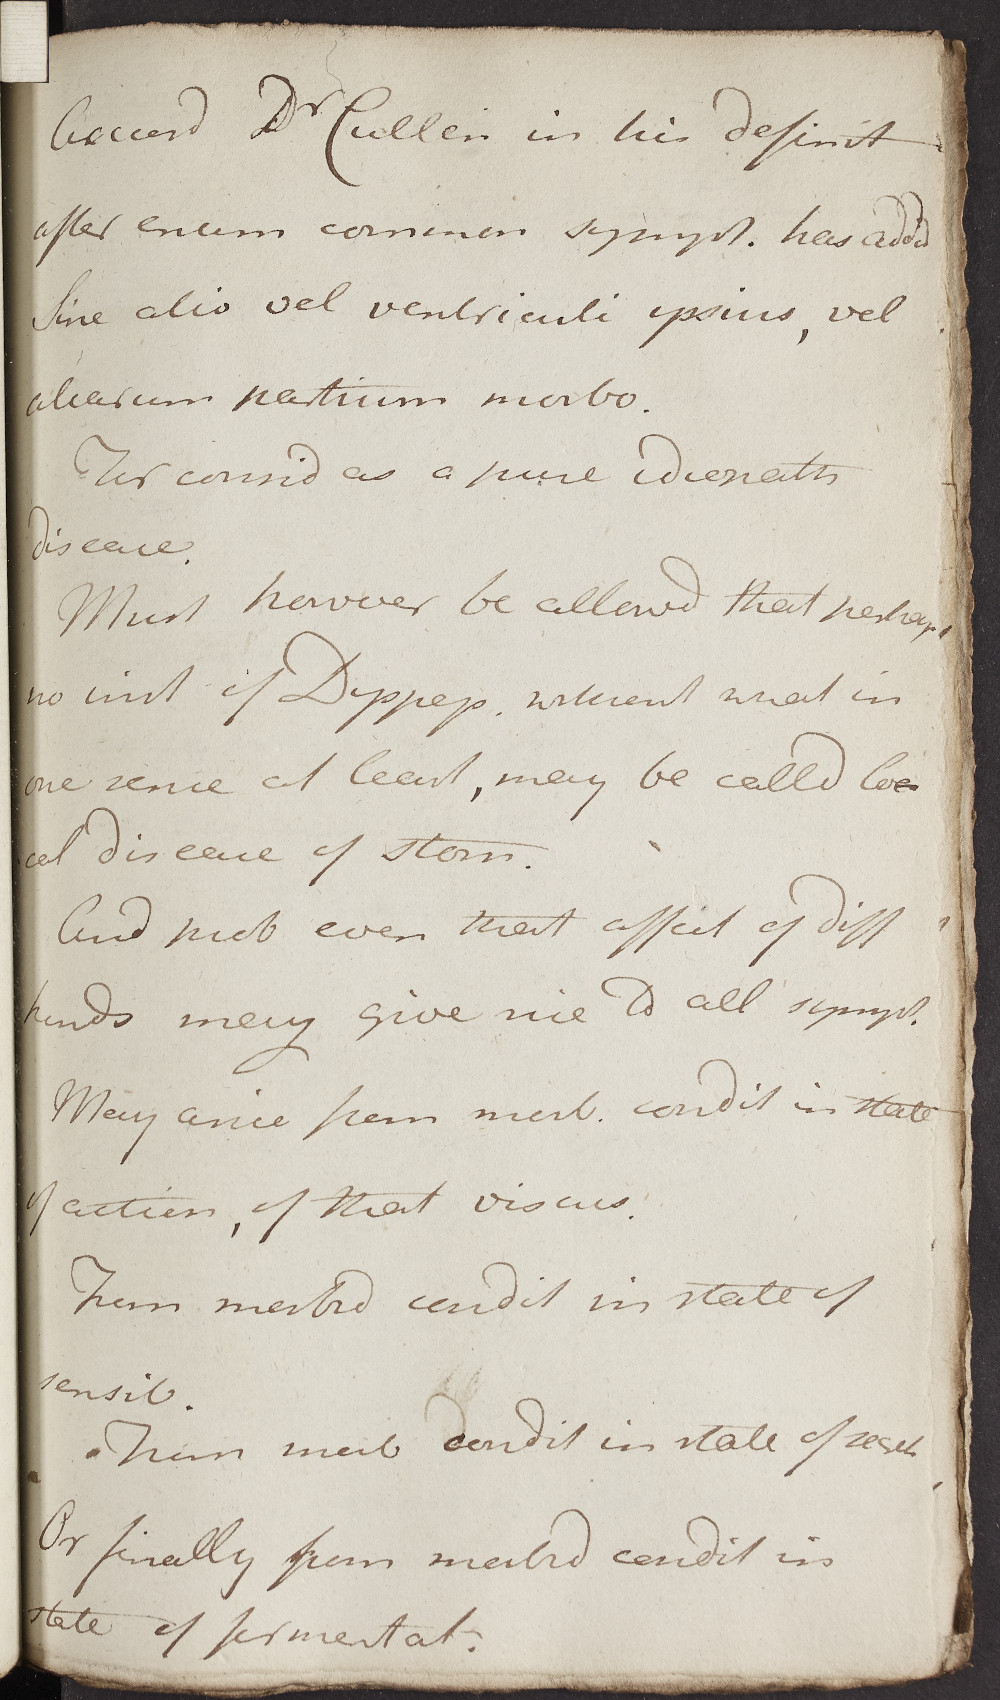 Accord Dr Cullen in his definit
after enum common sympt. has addd
Sine alio vel ventriculi ipsius, vel
aliarum partium morbo.
Thus considd as a pure idiopath
disease.
Must however be allowd that perhaps
no inst of Dyspep. without what in
one sense at least, may be calld lo
cal disease of stom.
And prob even that affect of diff
kinds may give rise to all sympt.
May arise from morb. condit in state
of action, of that viscus.
From morbd condit in state of
sensib.
From morb condit in state of secret
Or finally from morbd condit in
state of fermentat.